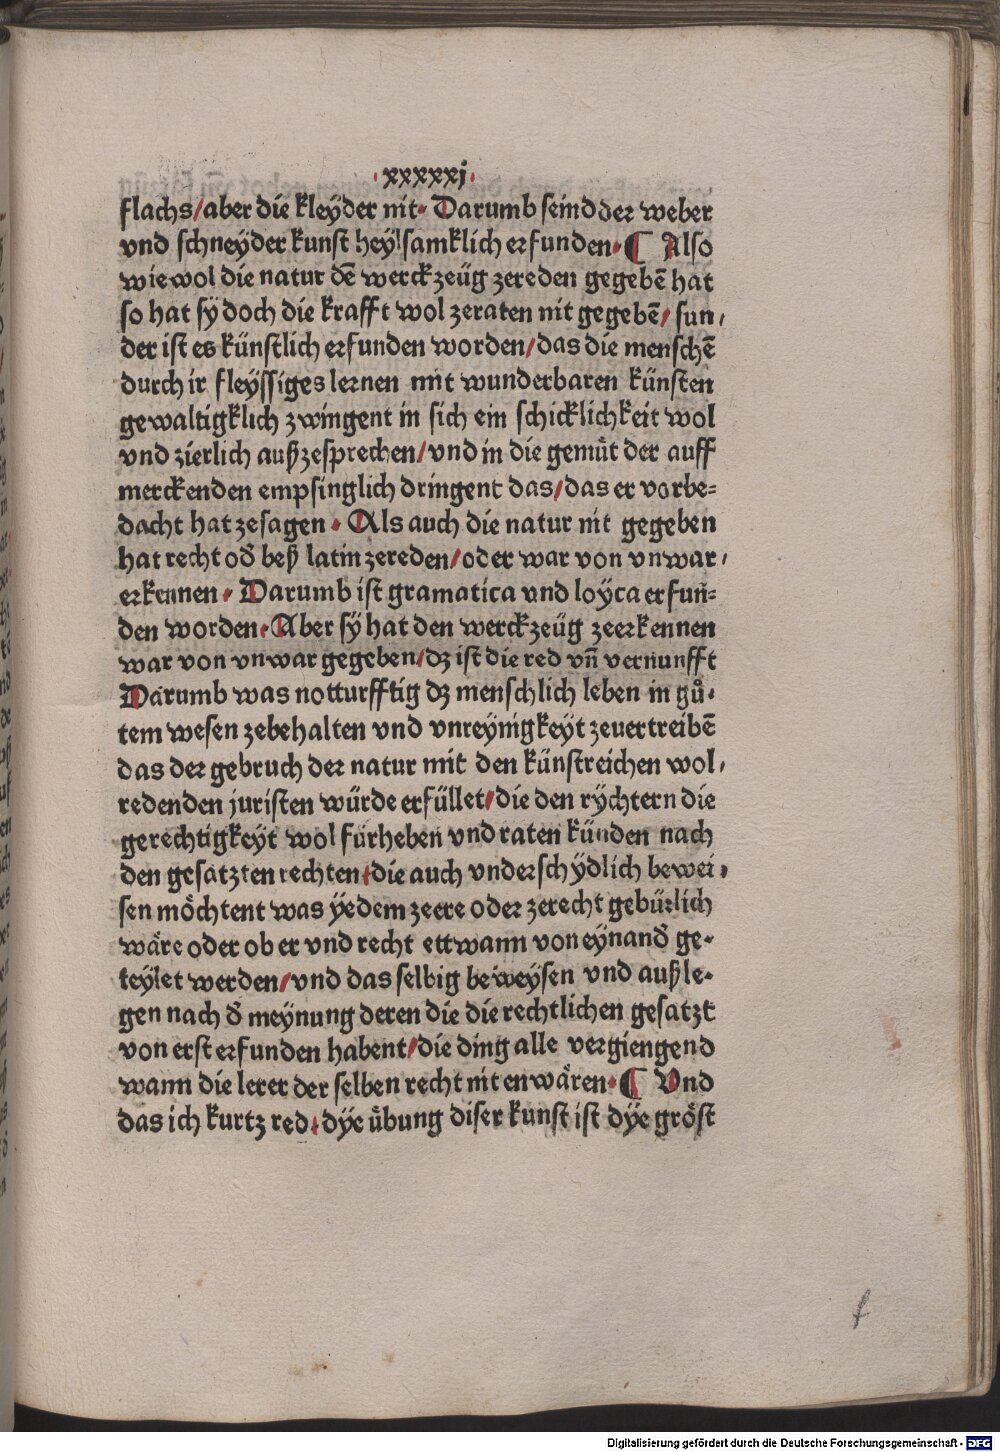 · xxxxxj ·
flachs/aber die kleÿder nit· Darumb seind der weber
vnd schneyder kunst heylsamklich erfunden· ¶ Also
wiewol die natur dē werckzeüg zereden gegebē hat
so hat sÿ doch die krafft wol zeraten nit gegebē/ sun⸗
der ist es künstlich erfunden worden/das die menschē
durch ir fleÿssiges lernen mit wunderbaren künsten
gewaltigklich zwingent in sich ein schicklichkeit wol
vnd zierlich außzesprechen/vnd in die gemüt der auff
merckenden empfinglich dringent das/das er vorbe⸗
dacht hat zesagen· Als auch die natur nit gegeben
hat recht od̄ beß latin zereden/oder war von vnwar⸗
erkennen· Darumb ist gramatica vnd loyca erfun̄⸗
den worden· Aber sÿ hat den werckzeüg zeerkennen
war von vnwar gegeben/dz ist die red vn̄ vernunfft
Darumb was notturfftig dz menschlich leben in gů⸗
tem wesen zebehalten vnd vnreÿnigkeÿt zeuertreibē
das der gebruch der natur mit den künstreichen wol⸗
redenden juristen würde erfüllet/die den rÿchtern die
gerechtigkeÿt wol fürheben vnd raten künden nach
den gesatzten rechten/die auch vnderschÿdlich bewei⸗
sen möchtent was ÿedem zeere oder zerecht gebürlich
wäre oder ob er vnd recht ettwann von eÿnand̄ ge⸗
teylet werden/vnd das selbig beweÿsen vnd außle⸗
gen nach d̄ meÿnung deren die die rechtlichen gesatzt
von erst erfunden habent/die ding alle vergiengend
wann die lerer der selben recht nit enwären· ¶ Vnd
das ich kurtz red/dÿe übung diser kunst ist dÿe gröst
f
Digitalisierung gefördert durch die Deutsche Forschungsgemeinschaft - DFG